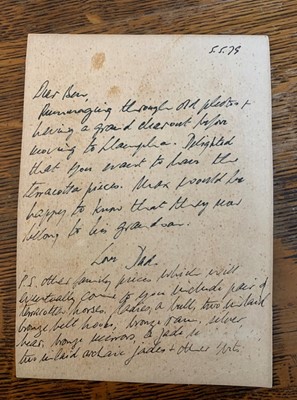 5.5.79
Dear Ben,
Rummaging through old photos +
having a grand clearout before
moving to Llangela. Delighted
that you want to have the
terracotta pieces. Max would be
happy to know that they now
belong to his grandson.
Love Dad.
P.S. other family pieces which will
eventually come to you include pair of
terracotta horses, ladies, a bull, two inlaid
bronze belt hooks, bronze ram, silver
bear, bronze mirrors, & jade
two inlaid archaic jades + other